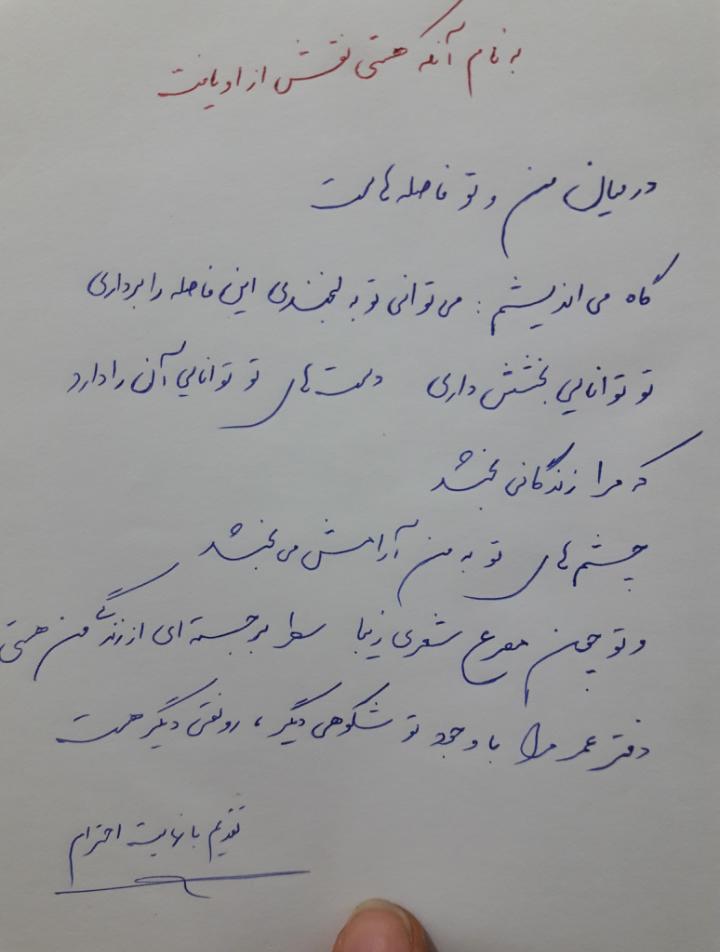 به نام آنکه هستی نقش از او یافت
در میان من و تو فاصله هاست
گاه می اندیشم : می توانی تو به لبخندی این فاصله را برداری
تو توانایی بخشش داری دست های تو توانایی آن را دارد
که مرا زندگانی بخشد
چشم های تو به من آرامش می بخشد
و تو چون مصرع شعری زیبا سطر برجسته ای از زندگی من هستی
دفتر عمر مرا با وجود تو شکوهی دیگر ، رونقی دیگر هست
تقدیم با نهایت احترام